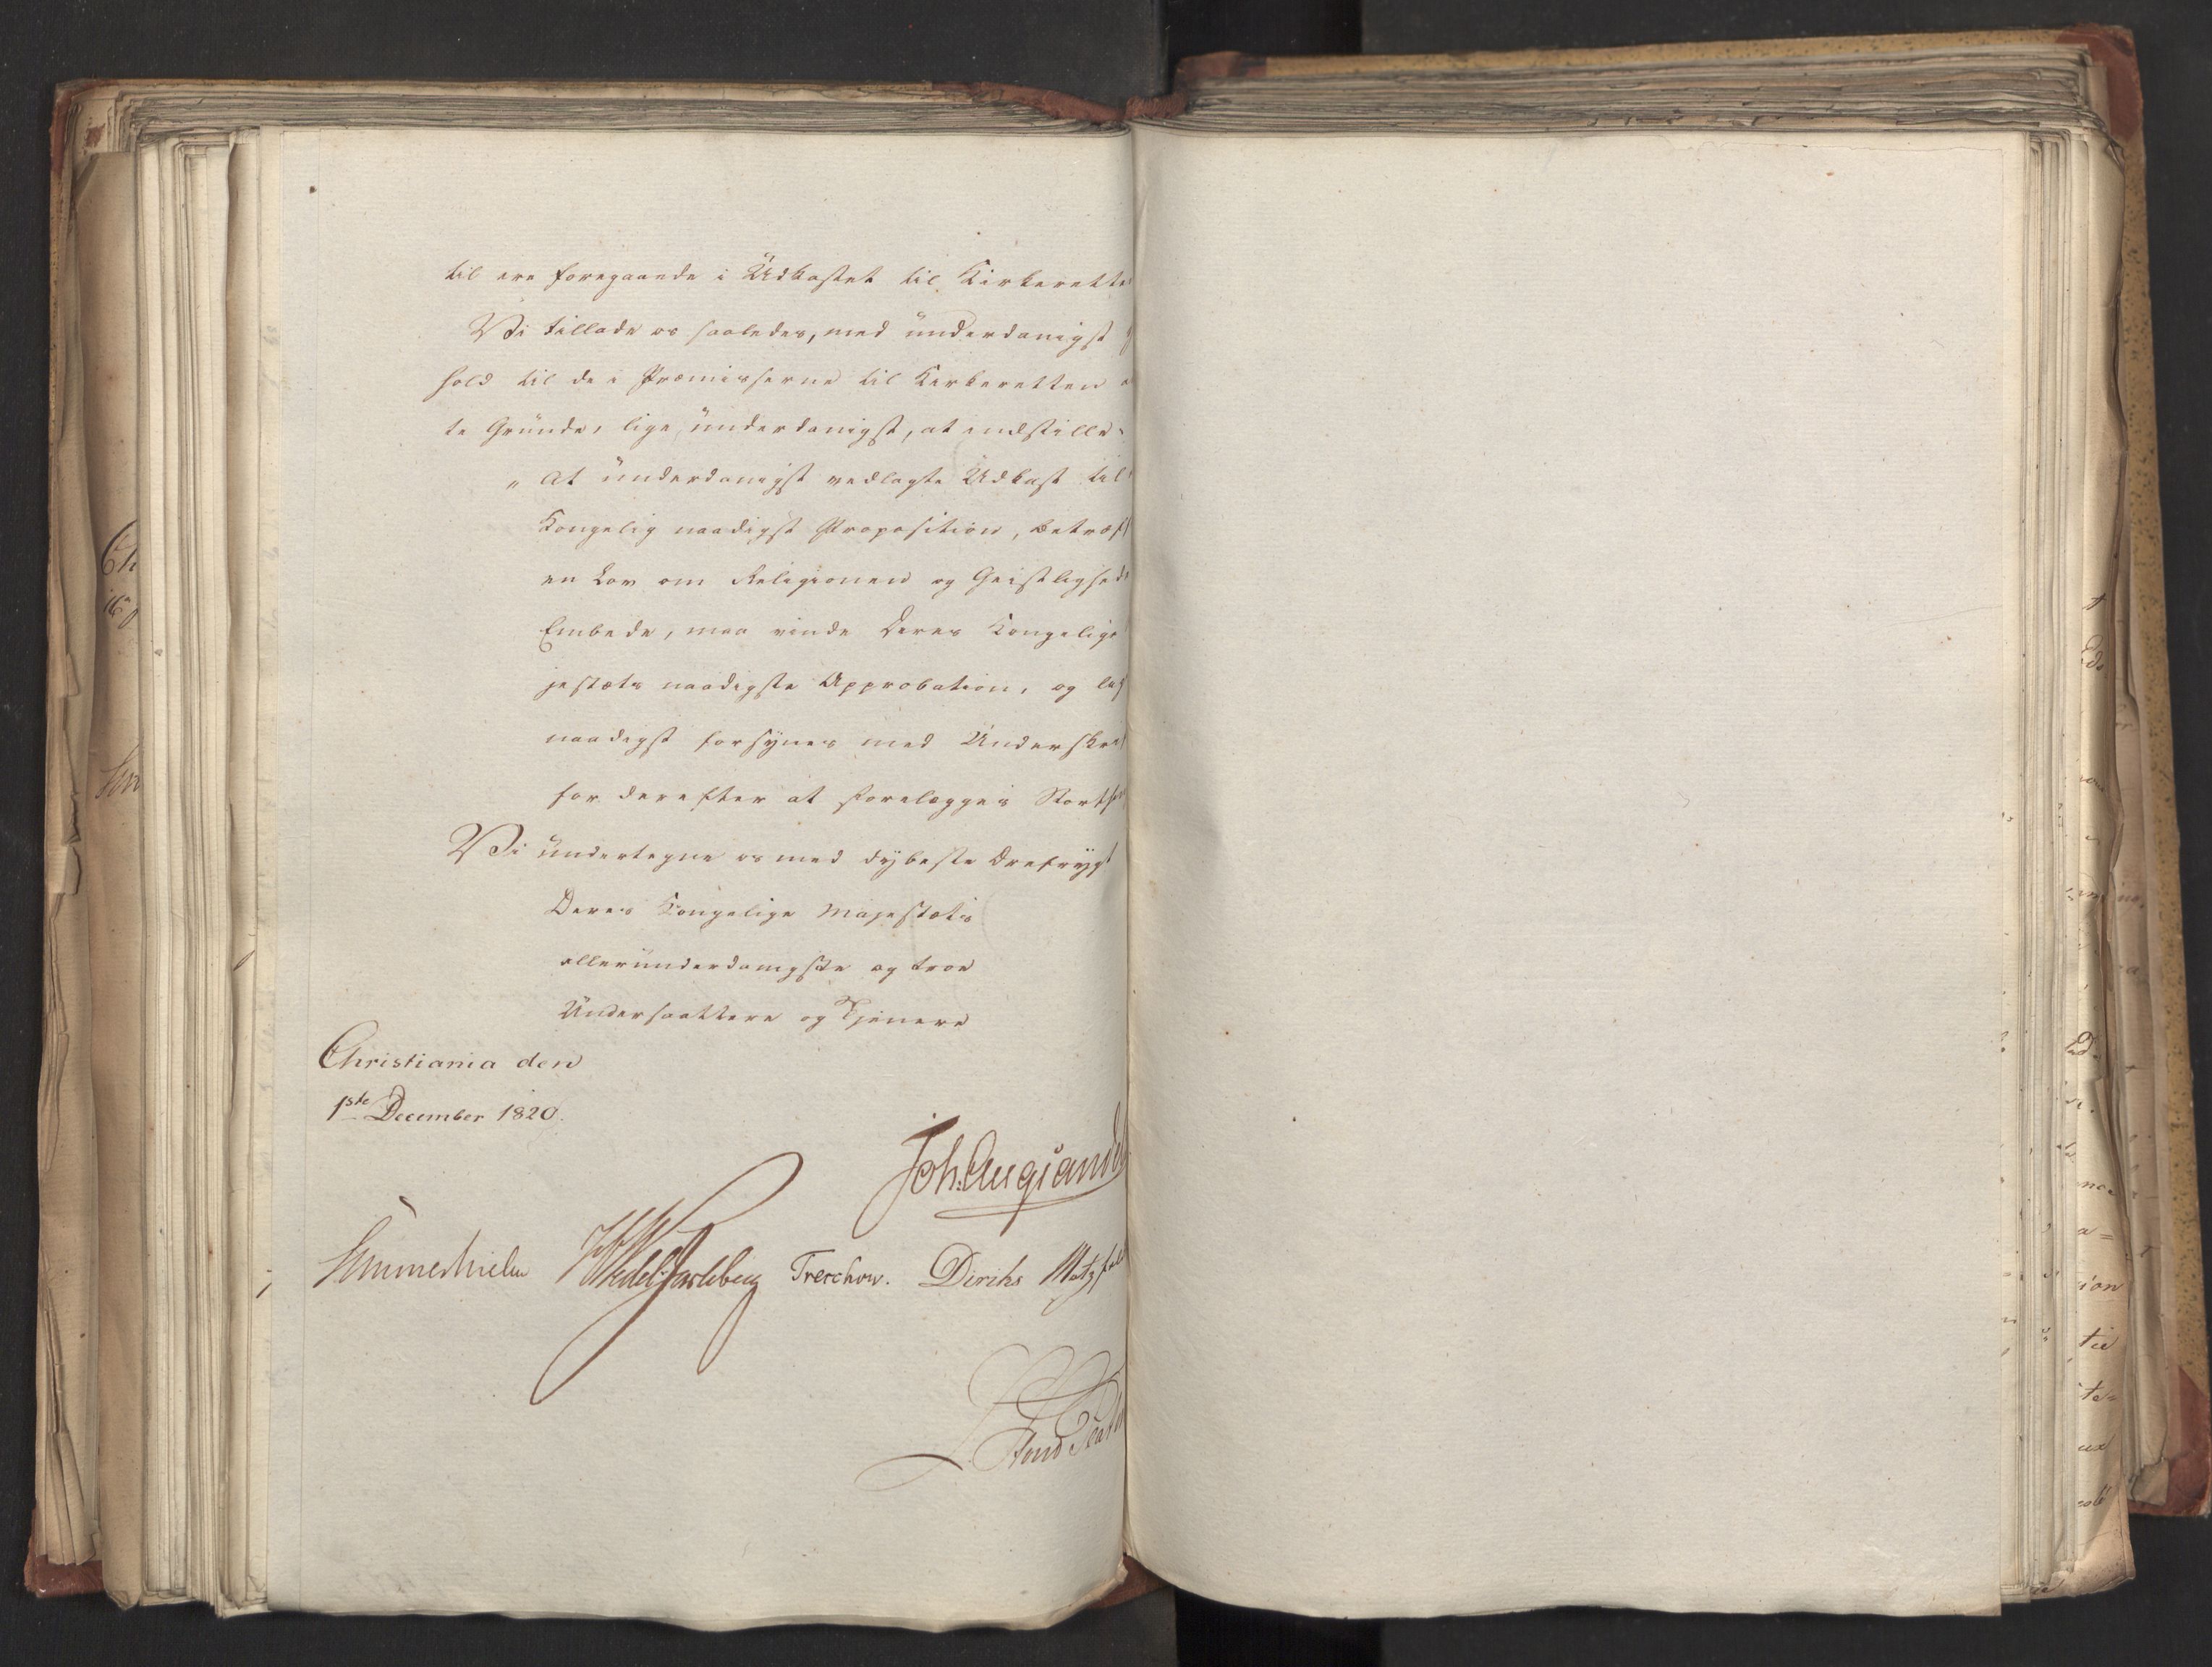 til ere foregaaende i Udkastet til Kirkerette
Vi tillade os saaledes, med underdanigst
hold til de i Præmisserne til Kirkeretten
te Grunde, lige underdanigst, at indstille:
„At underdanigst vedlagte Udkast til
Kongelig naadigst Proposition, betræf
en Lov om Religionen og Geistlighed
Embede, maa vinde Deres Kongelige
jestæts naadigste Approbation, og
naadigst forsynes med Underskri
for derefter at forelægges Storth
Vi undertegne os med dybeste Ærefrygt
Deres Kongelige Majestæts
allerunderdanigste og troe
Undersaattere og Tjenere
Christiania den
1ste December 1820.
Joh. Aug Sande
Sommerhielm Wedel Jarlsberg Treschow. Diriks Motzfel